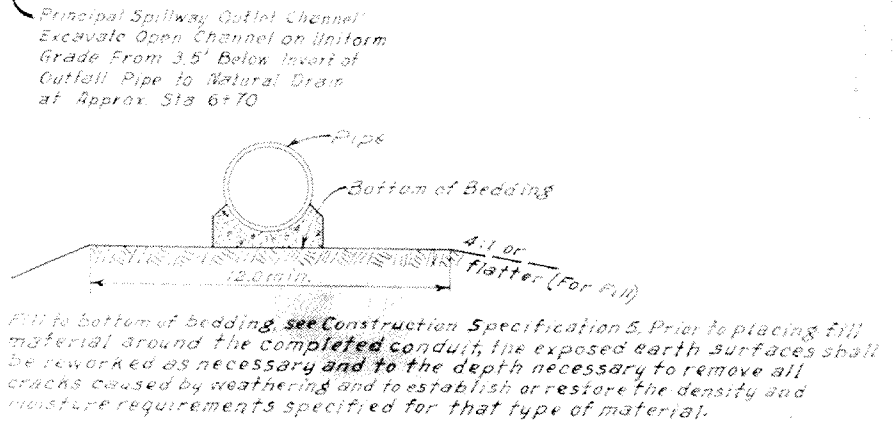 Principal Spillway Outlet Channel
Excavate Open Channel on Uniform
Grade From 3.5' Below Invert of
Outfall Pipe to Natural Drain
at Approx. Sta 6+70
Pipe
Bottom of Bedding
4:1 or
flatter (For Fill)
12.0 min.
Fill to bottom of bedding, see Construction Specification 5. Prior to placing fill
material around the completed conduit, the exposed earth surfaces shall
be reworked as necessary and to the depth necessary to remove all
cracks caused by weathering and to establish or restore the density and
moisture requirements specified for that type of material.